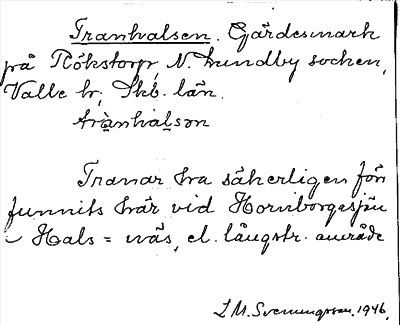 Tranhalsen. Gärdesmark
på Rökstorp, N. Lundby socken,
Valle hr; Skb. län.
trànhal̲son
Tranar ha säkerligen för
funnits här vid Hornborgasjön
– Hals = näs, el. långstr. område
L.M. Svenungsson. 1946.